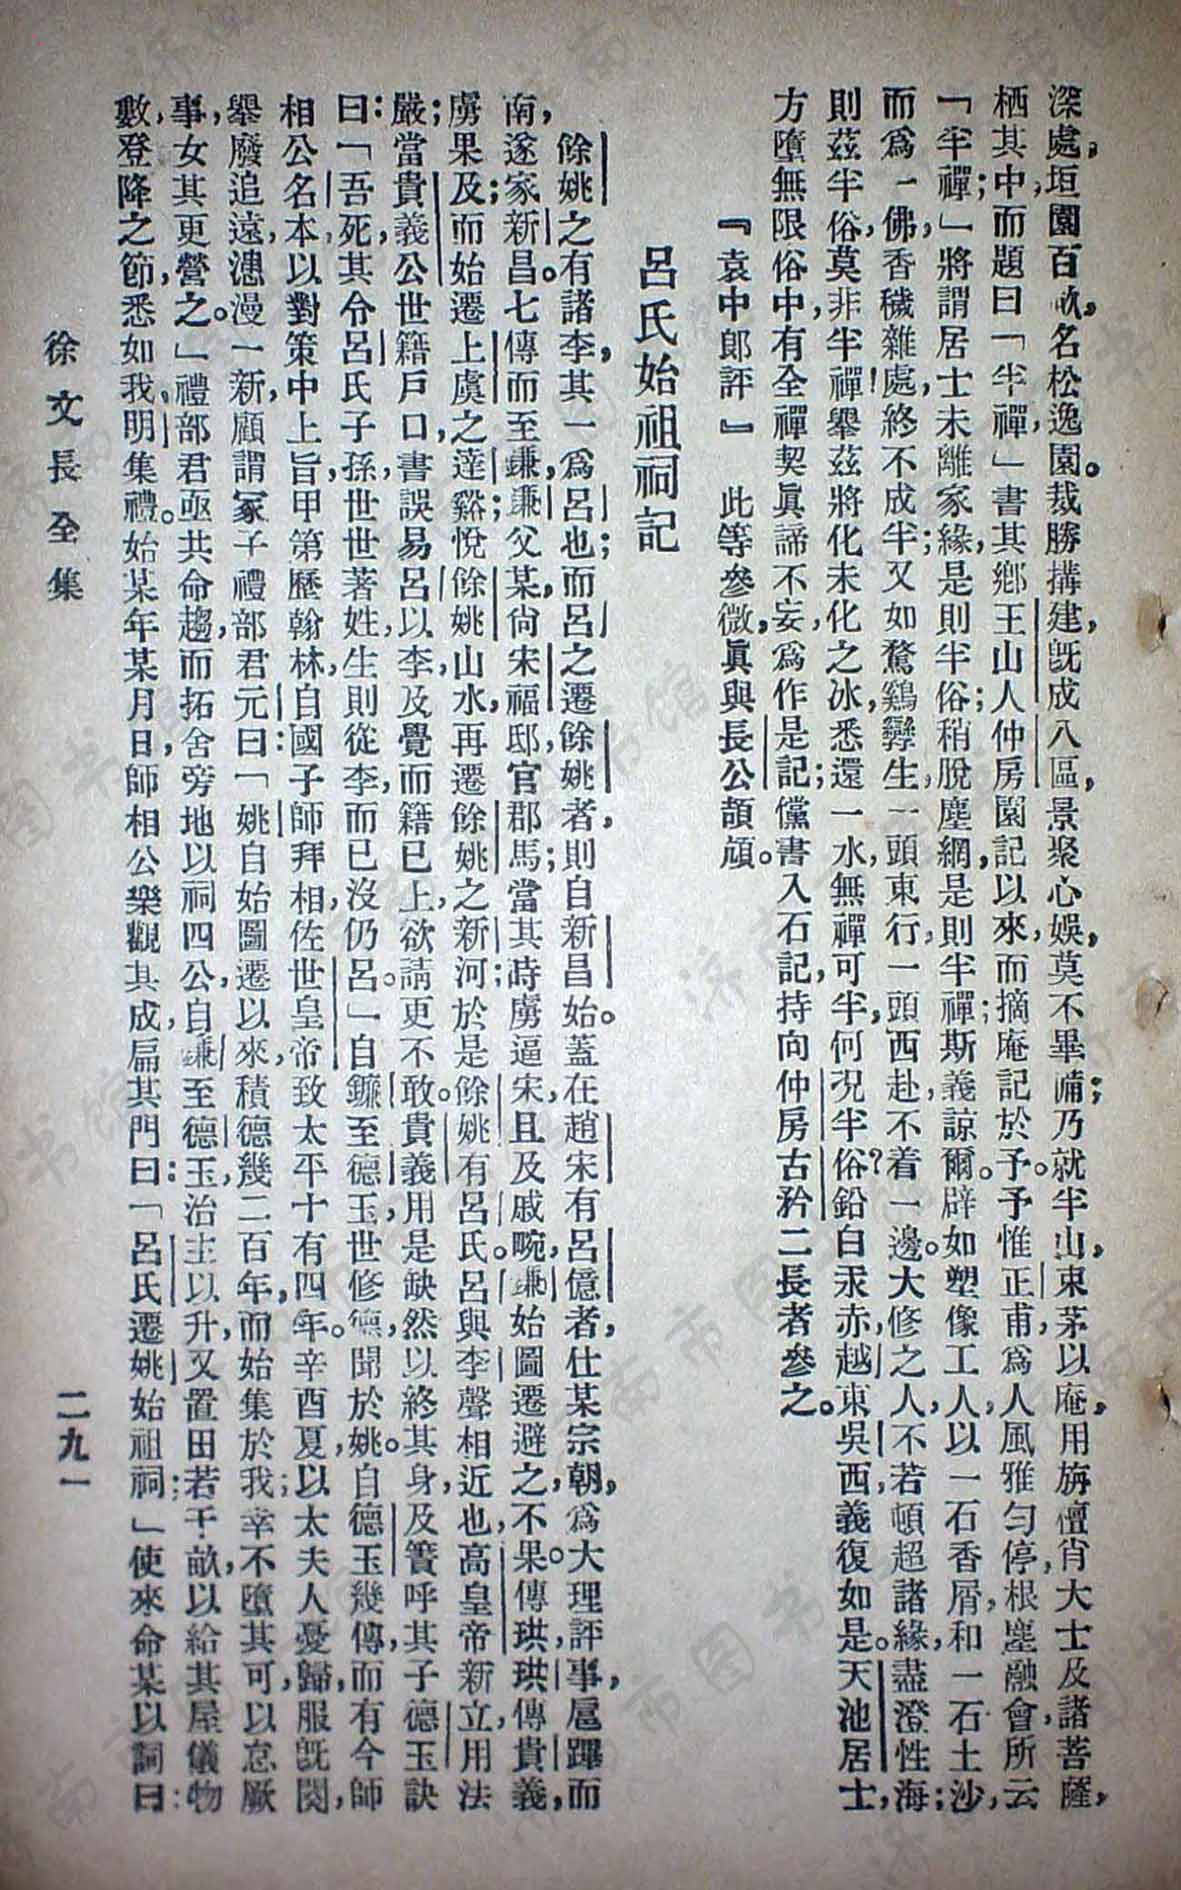 深處，垣園百畝，名松逸園。裁勝搆建，旣成八區，景聚心娛，莫不畢備；乃就半山，束茅以庵，用旃檀肖大士及諸菩薩，
栖其中；而題曰「半禪，」書其鄉王山人仲房園記以來；而摘庵記於予。予惟正甫，爲人風雅勻停，根塵融會，所云
「半禪」將謂居士未離家緣，是則半俗；稍脫塵網，是則半禪；斯義諒爾。辟如塑像工人，以一石香屑，和一石土沙，
而爲一佛，香穢雜處，終不成半；又如鶩鷄孿生，一頭東行，一頭西赴，不着一邊。大修之人，不若頓超諸緣，盡澄性海；
則茲半俗，莫非半禪！舉茲將化未化之冰，悉還一水，無禪可半，何況半俗？鉛白汞赤，越東吳西，義復如是。天池居士，
方墮無限俗中，有全禪契眞諦不妄，爲作是記；儻書入石記，持向仲房古矜二長者參之。
『袁中郎評』　此等參微，眞與長公頡頏。
呂氏始祖祠記
餘姚之有諸李，其一爲呂也；而呂之遷餘姚者，則自新昌始。蓋在趙宋有呂億者，仕某宗朝，爲大理評事，扈蹕而
南，遂家新昌。七傳而至鐮；鐮父某，尙宋福邸，官郡馬；當其時虜逼宋，且及戚畹，鐮始圖遷避之，不果。傳珙，珙傳貴義，
虜果及；而始遷上虞之達谿；悅餘姚山水，再遷餘姚之新河；於是餘姚有呂氏。呂與李聲相近也，高皇帝新立，用法
嚴；當貴義公世籍戶口，書誤易呂以李，及覺而籍已上，欲請更不敢。貴義用是缺然以終其身，及簀呼其子德玉訣
曰：「吾死，其令呂氏子孫，世世著姓，生則從李，而已沒仍呂。」自鐮至德玉，世修德，聞於姚。自德玉幾傳，而有今師
相公名本，以對策中上旨，甲第歷翰林，自國子師拜相，佐世皇帝致太平十有四年。辛酉夏，以太夫人憂歸，服旣闋，
舉廢追遠，漶漫一新，顧謂冢子禮部君元曰：「姚自始圖遷以來，積德幾二百年，而始集於我；幸不墮其可以怠厥
事，女其更營之。」禮部君亟共命趨，而拓舍旁地以祠四公，自鐮至德玉，治主以升，又置田若干畝，以給其屋儀物
數，登降之節，悉如我明集禮。始某年某月日，師相公樂觀其成，扁其門曰：「呂氏遷姚始祖祠；」使來命某以詞曰：
徐文長全集　二九一